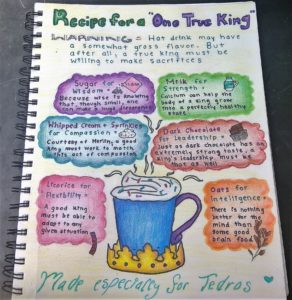 Recipe for a "One True King"
WARNING = Hot drink may have
a somewhat gross flavor. But
after all, a true king must be
willing to make sacrifices
Sugar for
Wisdom =
Because wise is knowing
that though small, one
can make a huge difference
Milk for
Strength =
Calcium can help the
body of a king grow
into a perfectly healthy
state
Whipped Cream + Sprinkles
for Compassion =
Courtesy of Merlin, a good
king must work to match
his act of compassion
Dark Chocolate
for Leadership =
Just a dark chocolate has an
extremely strong taste, a
king's leadership must be
that as well
Licorice for
Flexibility =
A good king
must be able to
adapt to any
given situation
Oats for
Intelligence =
There is nothing
better for the
mind than
some good
brain food
Made especially for Tedros